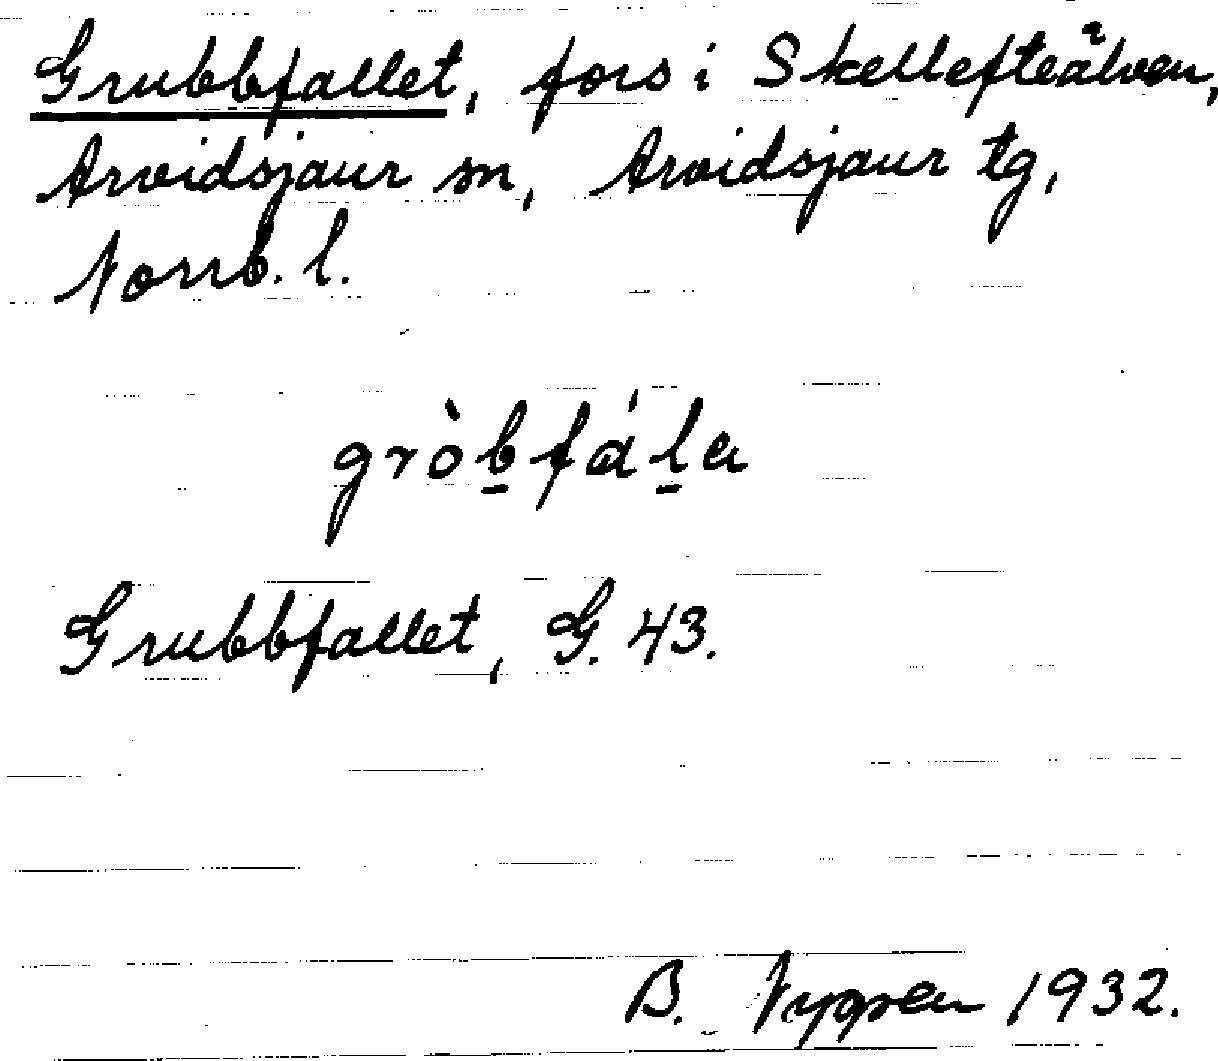 Grubbfallet, fors i Skellefteälven,
Arvidsjaur sn, Arvidsjaur tg,
Norrb. l.
gròb̲fál̲a
Grubbfallet, G. 43.
B. 1932.